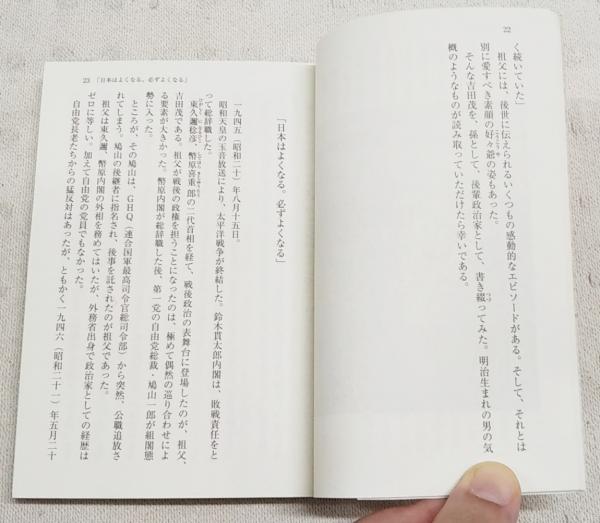 22
く続いていた」
祖父には、後世に伝えられるいくつもの感動的なエピソードがある。そして、それとは
別に愛すべき素顔の好々爺の姿もあった。
そんな吉田茂を、孫として、後輩政治家として、書き綴ってみた。明治生まれの男の気
概のようなものが読み取っていただけたら幸いである。
23 「日本はよくなる。必ずよくなる」
「日本はよくなる。必ずよくなる」
一九四五（昭和二十）年八月十五日。
昭和天皇の玉音放送により、太平洋戦争が終結した。鈴木貫太郎内閣は、敗戦責任をと
って総辞職した。
東久邇稔彦、幣原喜重郎の二代首相を経て、戦後政治の表舞台に登場したのが、祖父、
吉田茂である。祖父が戦後の政権を担うことになったのは、極めて偶然の巡り合わせによ
る要素が大きかった。幣原内閣が総辞職した後、第一党の自由党総裁・鳩山一郎が組閣態
勢に入った。
ところが、その鳩山は、GHQ（連合国軍最高司令官総司令部）から突然、公職追放さ
れてしまう。鳩山の後継者に指名され、後事を託されたのが祖父であった。
祖父は東久邇、幣原内閣の外相を務めてはいたが、外務省出身で政治家としての経歴は
ゼロに等しい。加えて自由党の党員でもなかった。
自由党長老たちからの猛反対はあったが、ともかく一九四六（昭和二十一）年五月二十